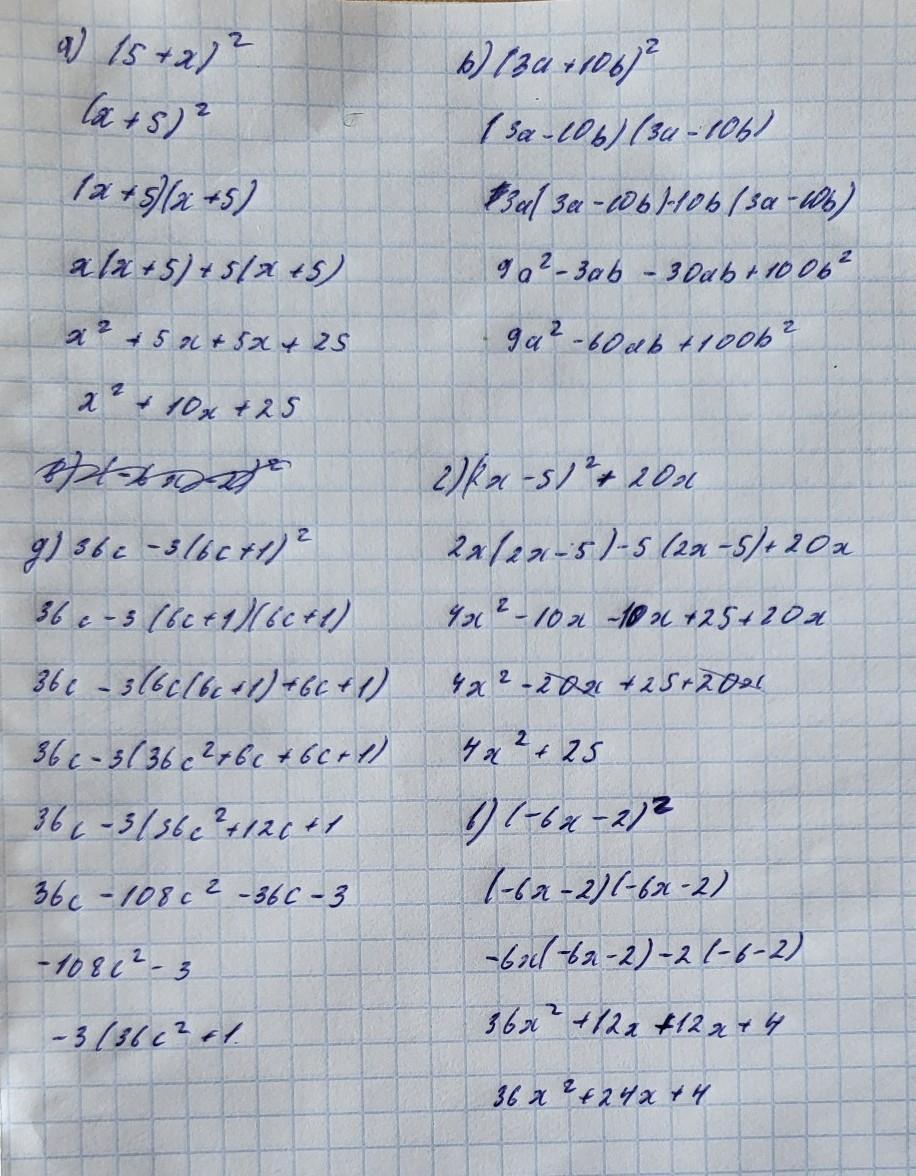 а) (5 + x)²
(x + 5)²
(x + 5)(x + 5)
x(x + 5) + 5(x + 5)
x² + 5x + 5x + 25
x² + 10x + 25
b) (3a + 10b)²
(3a - 10b)(3a - 10b)
3a(3a - 10b) - 10b(3a - 10b)
9a² - 3ab - 30ab + 100b²
9a² - 60ab + 100b²
д) 36c - 3(6c + 1)²
36c - 3(6c + 1)(6c + 1)
36c - 3(6c(6c + 1) + 6c + 1)
36c - 3(36c² + 6c + 6c + 1)
36c - 3(36c² + 12c + 1
36c - 108c² - 36c - 3
-108c² - 3
-3(36c² + 1
г) (2x - 5)² + 20x
2x(2x - 5) - 5(2x - 5) + 20x
4x² - 10x - 10x + 25 + 20x
4x² - 20x + 25 + 20x
4x² + 25
в) (-6x - 2)²
(-6x - 2)(-6x - 2)
-6x(-6x - 2) - 2(-6 - 2)
36x² + 12x + 12x + 4
36x² + 24x + 4